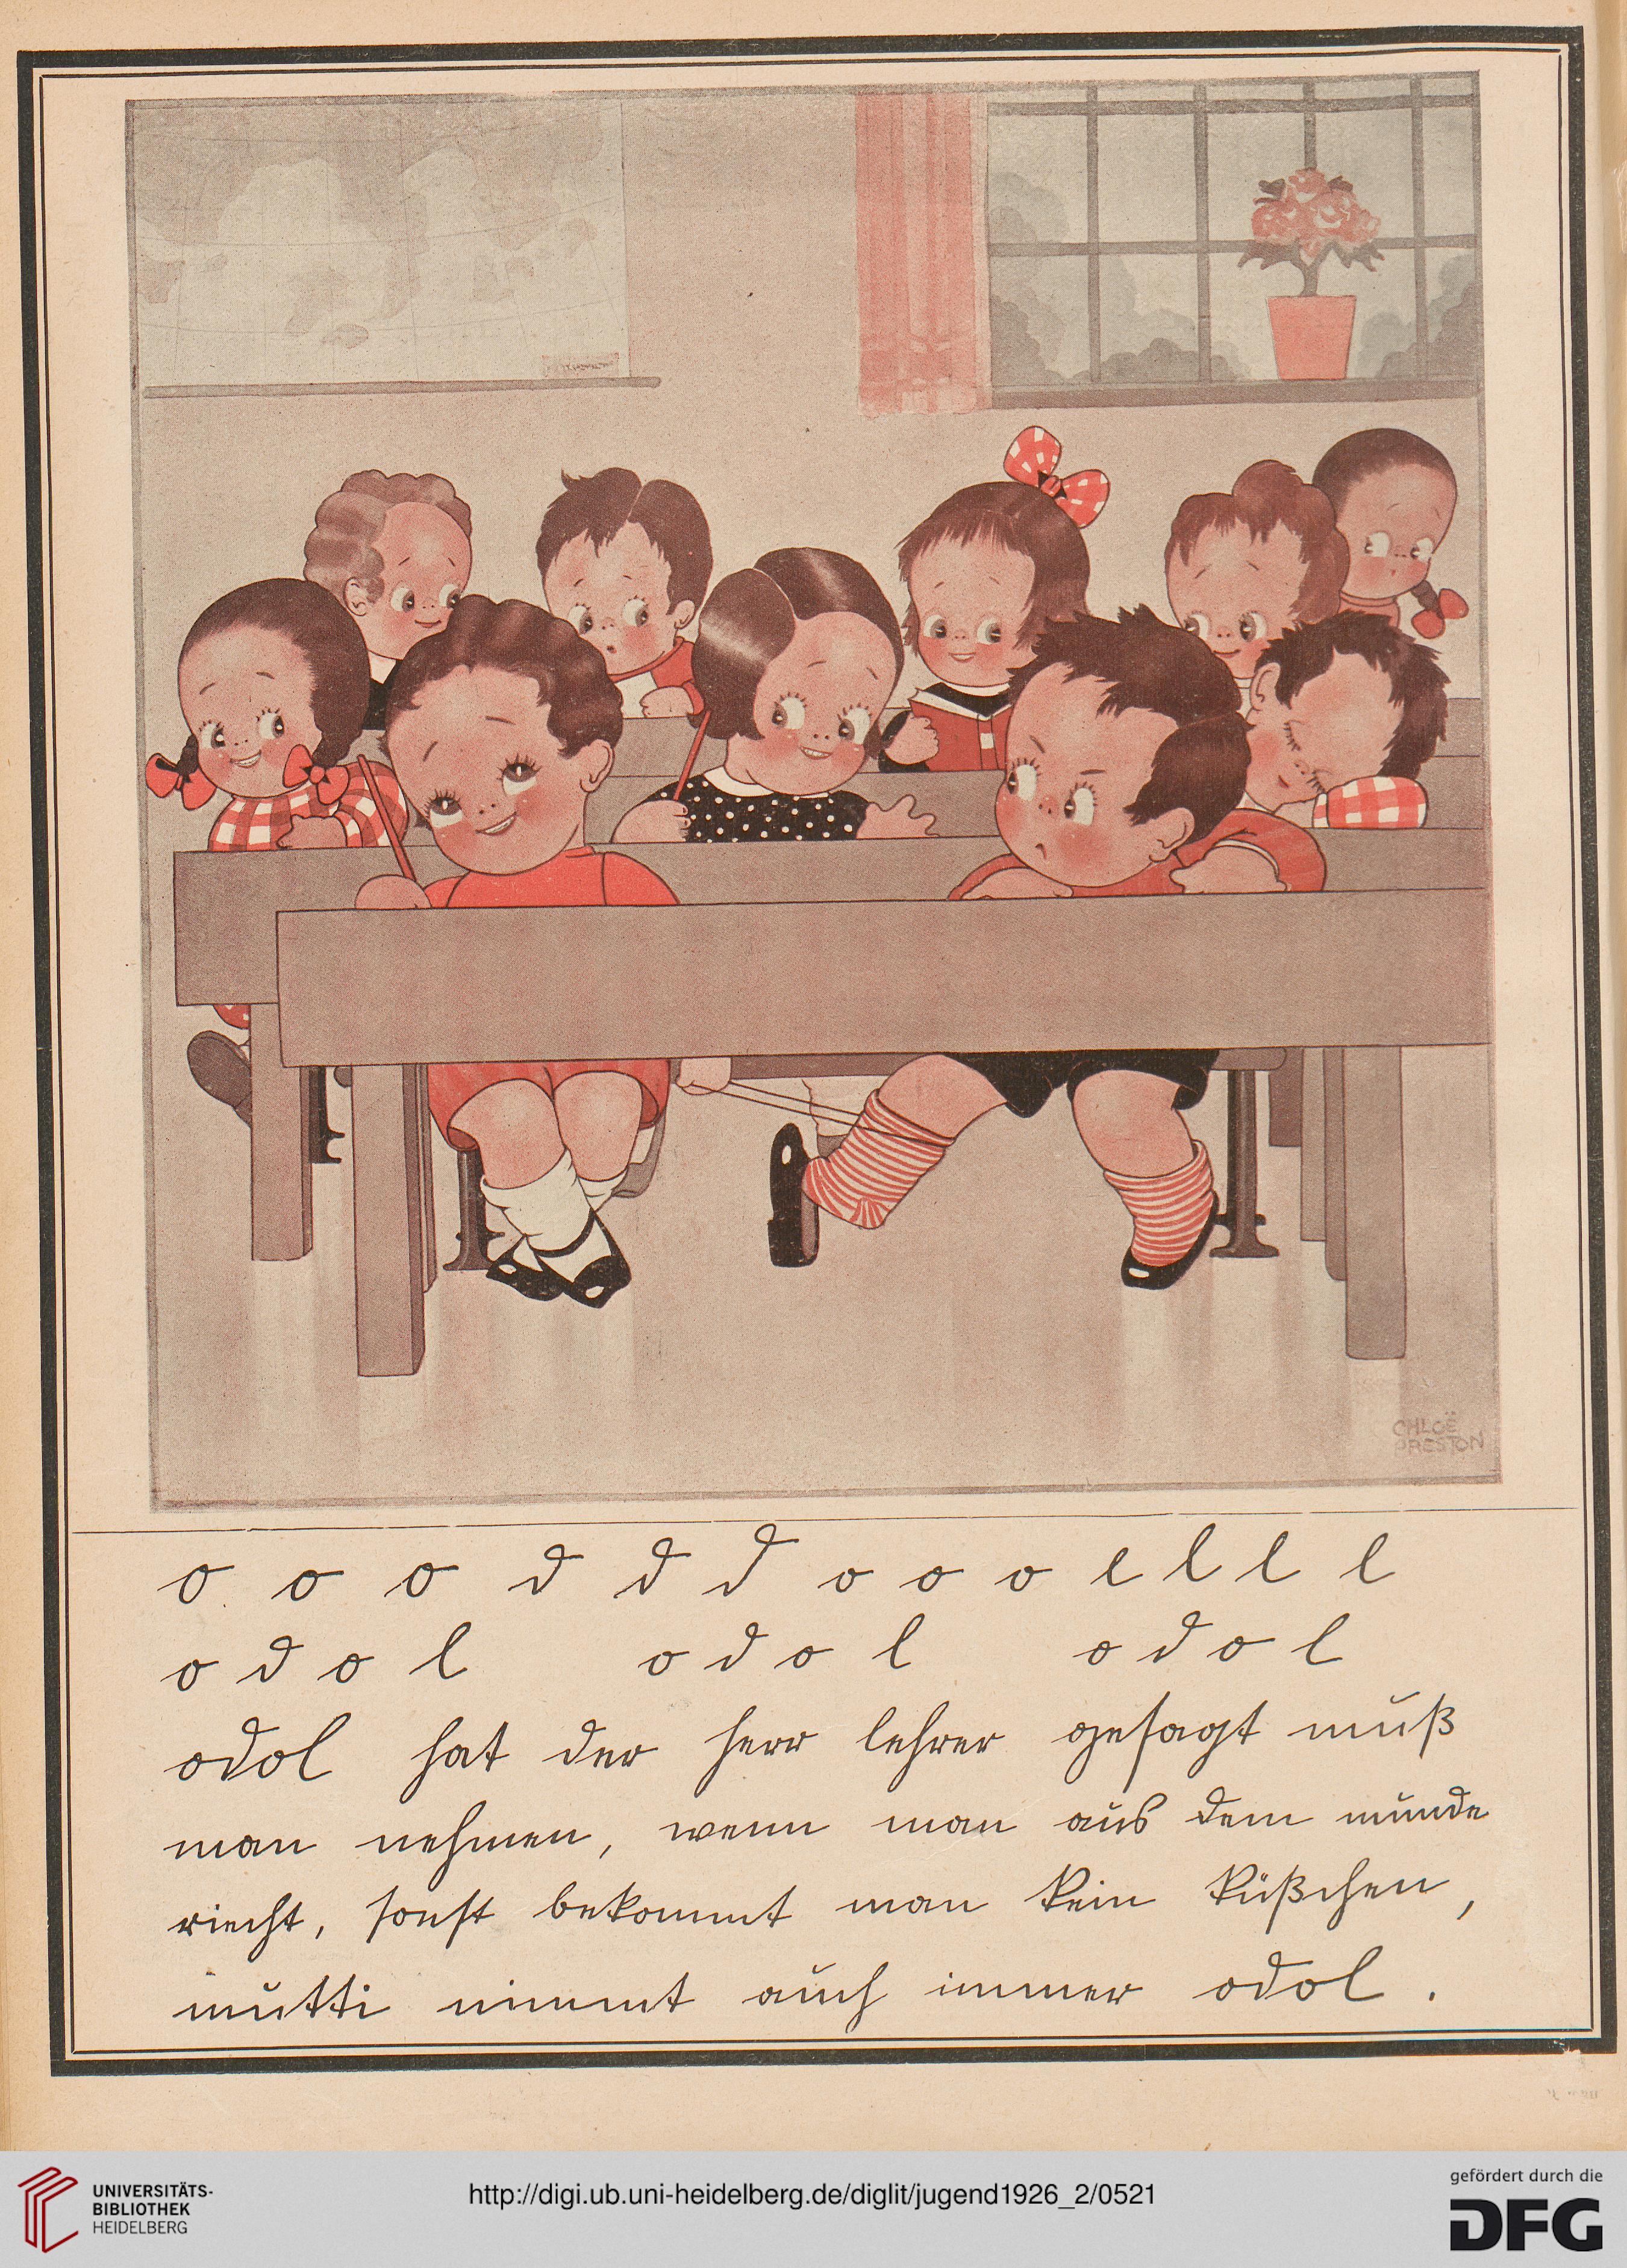 CHLOË
PRESTON
o o o d d d o o o l l l l
o d o l o d o l o d o l
odol hat der herr lehrer gesagt muß
man nehmen, wenn man aus dem munde
riecht, sonst bekommt man kein küßchen,
mutti nimmt auch immer odol .
UNIVERSITÄTS-
BIBLIOTHEK
HEIDELBERG
http://digi.ub.uni-heidelberg.de/diglit/jugend1926_2/0521
gefördert durch die
DFG